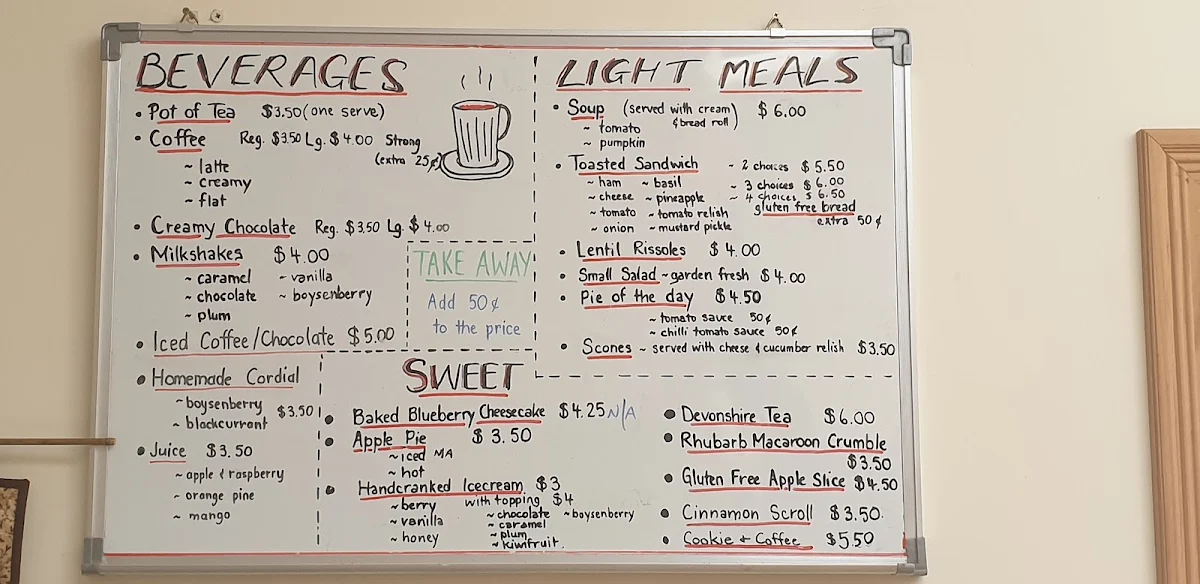 BEVERAGES
• Pot of Tea $3.50 (one serve)
• Coffee Reg. $3.50 Lg. $4.00 Strong
(extra 25¢)
~ latte
~ creamy
~ flat
• Creamy Chocolate Reg. $3.50 Lg. $4.00
• Milkshakes $4.00
~ caramel ~ vanilla
~ chocolate ~ boysenberry
~ plum
• Iced Coffee/Chocolate $5.00
• Homemade Cordial
~ boysenberry $3.50
~ blackcurrant
• Juice $3.50
~ apple & raspberry
~ orange pine
~ mango
TAKE AWAY
Add 50¢
to the price
LIGHT MEALS
• Soup (served with cream $6.00
& bread roll)
~ tomato
~ pumpkin
• Toasted Sandwich ~ 2 choices $5.50
~ ham ~ basil ~ 3 choices $6.00
~ cheese ~ pineapple ~ 4 choices $6.50
~ tomato ~ tomato relish gluten free bread
~ onion ~ mustard pickle extra 50¢
• Lentil Rissoles $4.00
• Small Salad ~ garden fresh $4.00
• Pie of the day $4.50
~ tomato sauce 50¢
~ chilli tomato sauce 50¢
• Scones ~ served with cheese & cucumber relish $3.50
SWEET
• Baked Blueberry Cheesecake $4.25 N/A
• Apple Pie $3.50
~ iced NA
~ hot
• Handcranked Icecream $3
~ berry with topping $4
~ vanilla ~ chocolate ~ boysenberry
~ honey ~ caramel
~ plum
~ kiwifruit
• Devonshire Tea $6.00
• Rhubarb Macaroon Crumble
$3.50
• Gluten Free Apple Slice $4.50
• Cinnamon Scroll $3.50
• Cookie + Coffee $5.50